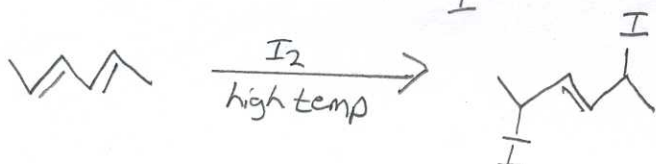 I
I
I2
high temp
I